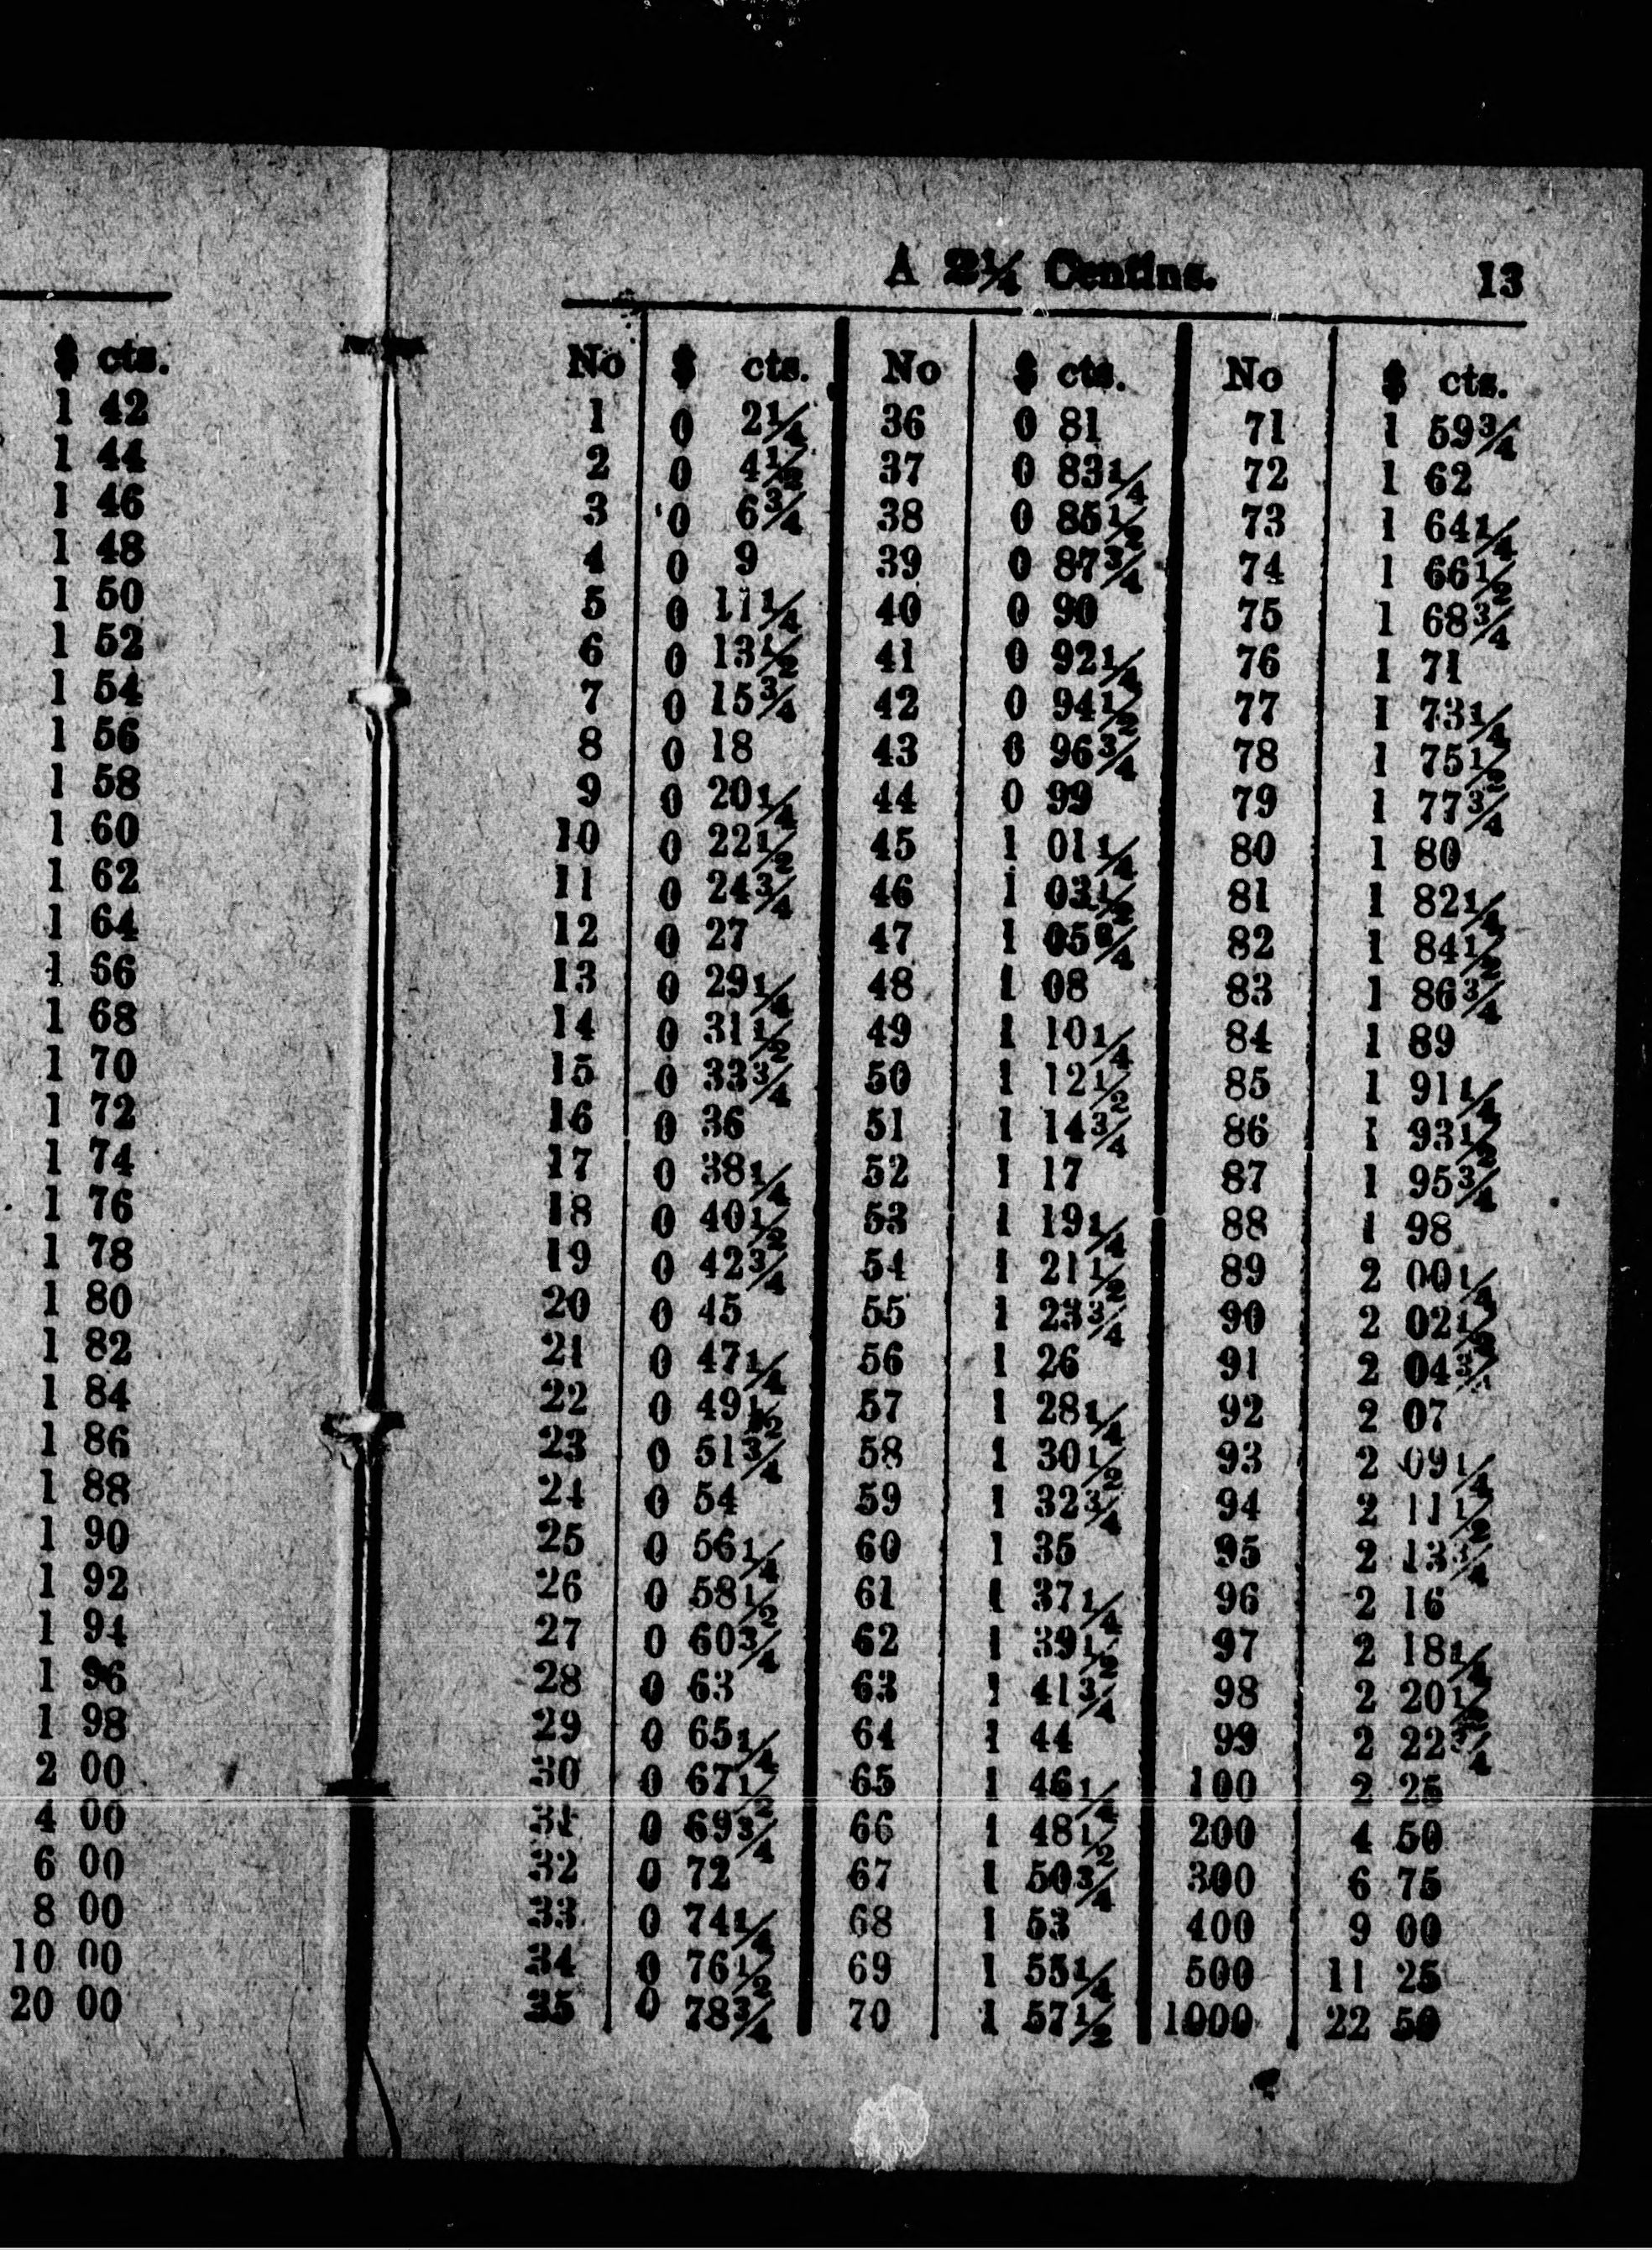 $ cts.
1 42
1 44
1 46
1 48
1 50
1 52
1 54
1 56
1 58
1 60
1 62
1 64
1 66
1 68
1 70
1 72
1 74
1 76
1 78
1 80
1 82
1 84
1 86
1 88
1 90
1 92
1 94
1 96
1 98
2 00
4 00
6 00
8 00
10 00
20 00
A 2¼ Centins. 13
No $ cts. No $ cts. No $ cts.
1 0 2¼ 36 0 81 71 1 59¾
2 0 4½ 37 0 83¼ 72 1 62
3 0 6¾ 38 0 85½ 73 1 64¼
4 0 9 39 0 87¾ 74 1 66½
5 0 11¼ 40 0 90 75 1 68¾
6 0 13½ 41 0 92¼ 76 1 71
7 0 15¾ 42 0 94½ 77 1 73¼
8 0 18 43 0 96¾ 78 1 75½
9 0 20¼ 44 0 99 79 1 77¾
10 0 22½ 45 1 01¼ 80 1 80
11 0 24¾ 46 1 03½ 81 1 82¼
12 0 27 47 1 05¾ 82 1 84½
13 0 29¼ 48 1 08 83 1 86¾
14 0 31½ 49 1 10¼ 84 1 89
15 0 33¾ 50 1 12½ 85 1 91¼
16 0 36 51 1 14¾ 86 1 93½
17 0 38¼ 52 1 17 87 1 95¾
18 0 40½ 53 1 19¼ 88 1 98
19 0 42¾ 54 1 21½ 89 2 00¼
20 0 45 55 1 23¾ 90 2 02½
21 0 47¼ 56 1 26 91 2 04¾
22 0 49½ 57 1 28¼ 92 2 07
23 0 51¾ 58 1 30½ 93 2 09¼
24 0 54 59 1 32¾ 94 2 11½
25 0 56¼ 60 1 35 95 2 13¾
26 0 58½ 61 1 37¼ 96 2 16
27 0 60¾ 62 1 39½ 97 2 18¼
28 0 63 63 1 41¾ 98 2 20½
29 0 65¼ 64 1 44 99 2 22¾
30 0 67½ 65 1 46¼ 100 2 25
31 0 69¾ 66 1 48½ 200 4 50
32 0 72 67 1 50¾ 300 6 75
33 0 74¼ 68 1 53 400 9 00
34 0 76½ 69 1 55¼ 500 11 25
35 0 78¾ 70 1 57½ 1000 22 50